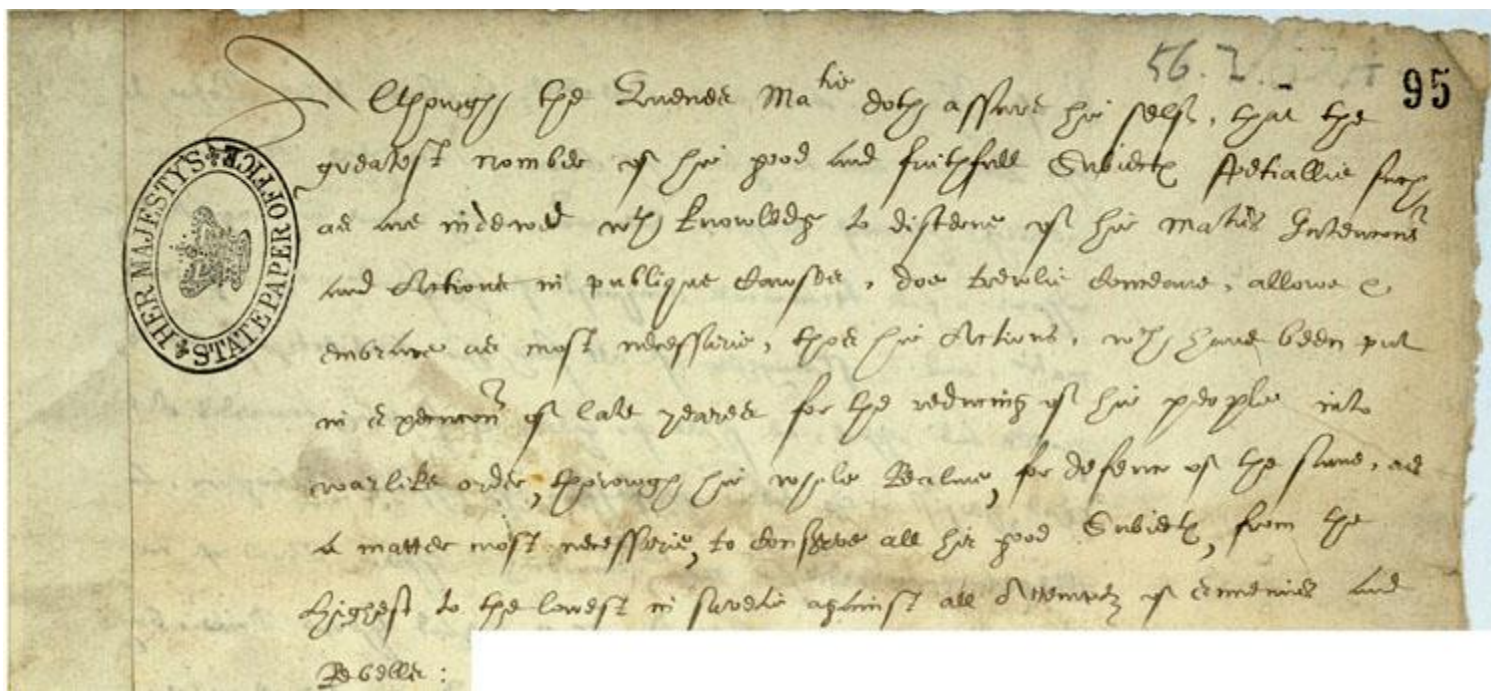 56. I.
95
Althowgh the Quenes Ma^tie doth assure hir self, that the
greatest nomber of hir good and faithfull Subiectes spetiallie such
as are indewed w^th knowledg to discerne of hir Ma^ties Intencions
and Actions in publique Cawses, doe trewlie conceave, allowe &
embrace as most necessarie, thos hir Actions, w^ch have been put
in execucion of late yeares for the reducing of hir people into
warlike order, thorowgh hir whole Realme, for defence of the same, as
a matter most necessarie, to conserve all hir good Subiectes, from the
highest to the lowest in suretie against all Attemptes of Ennemies and
Rebelles:
HER MAJESTY'S STATE PAPER OFFICE